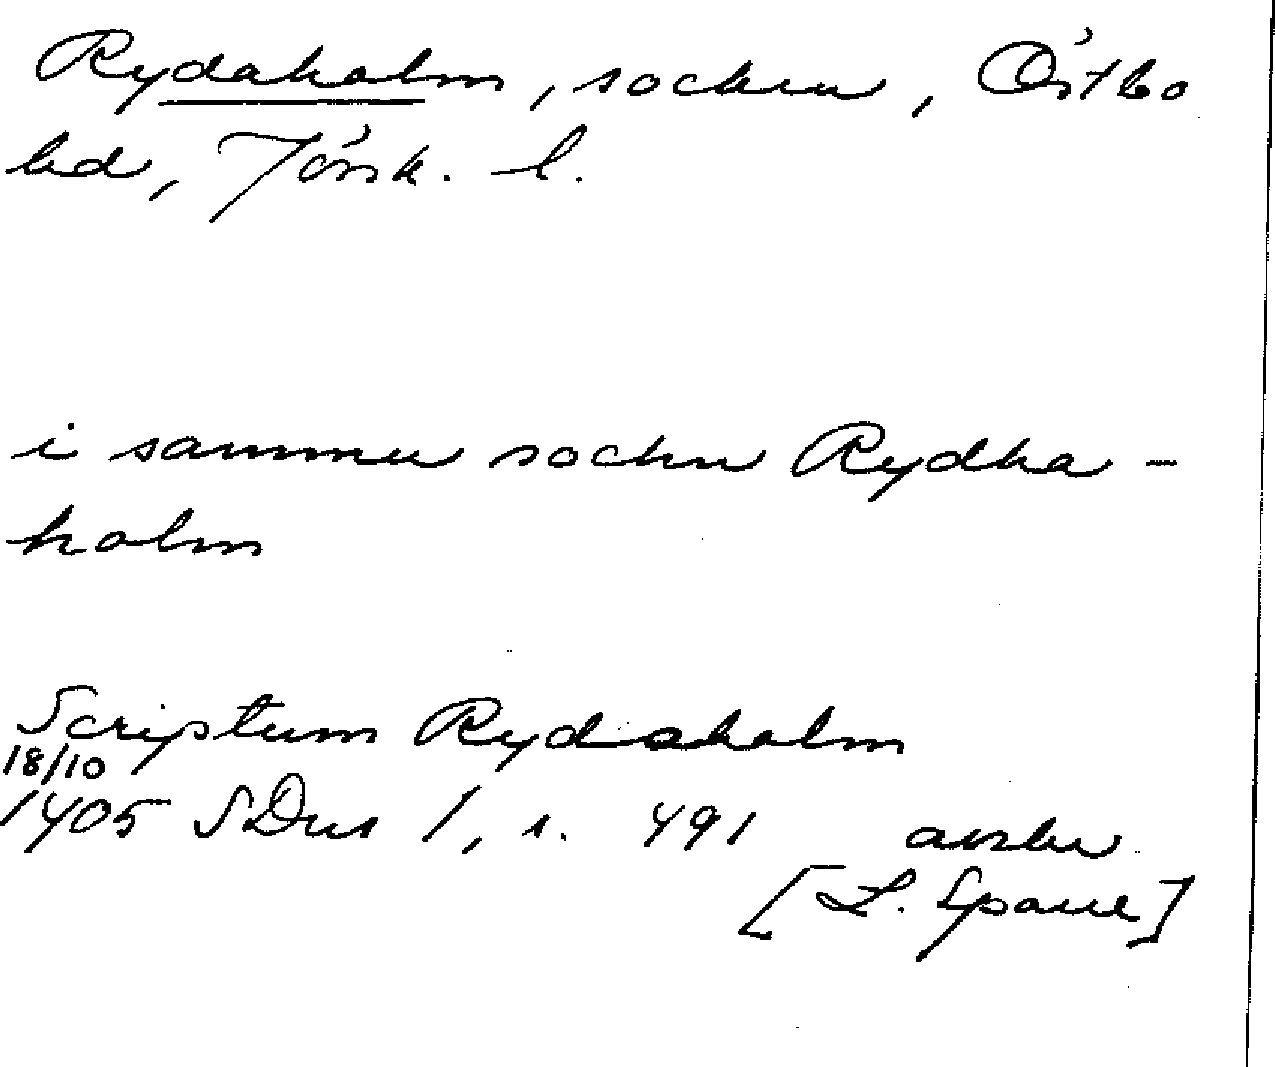 Rydaholm, socken, Östbo
hd, Jönk. l.
i samme sockn Rydha-
holm
Scriptum Rydaholm
18/10
1405 SDns 1, s. 491 avskr
[L. Spaue]